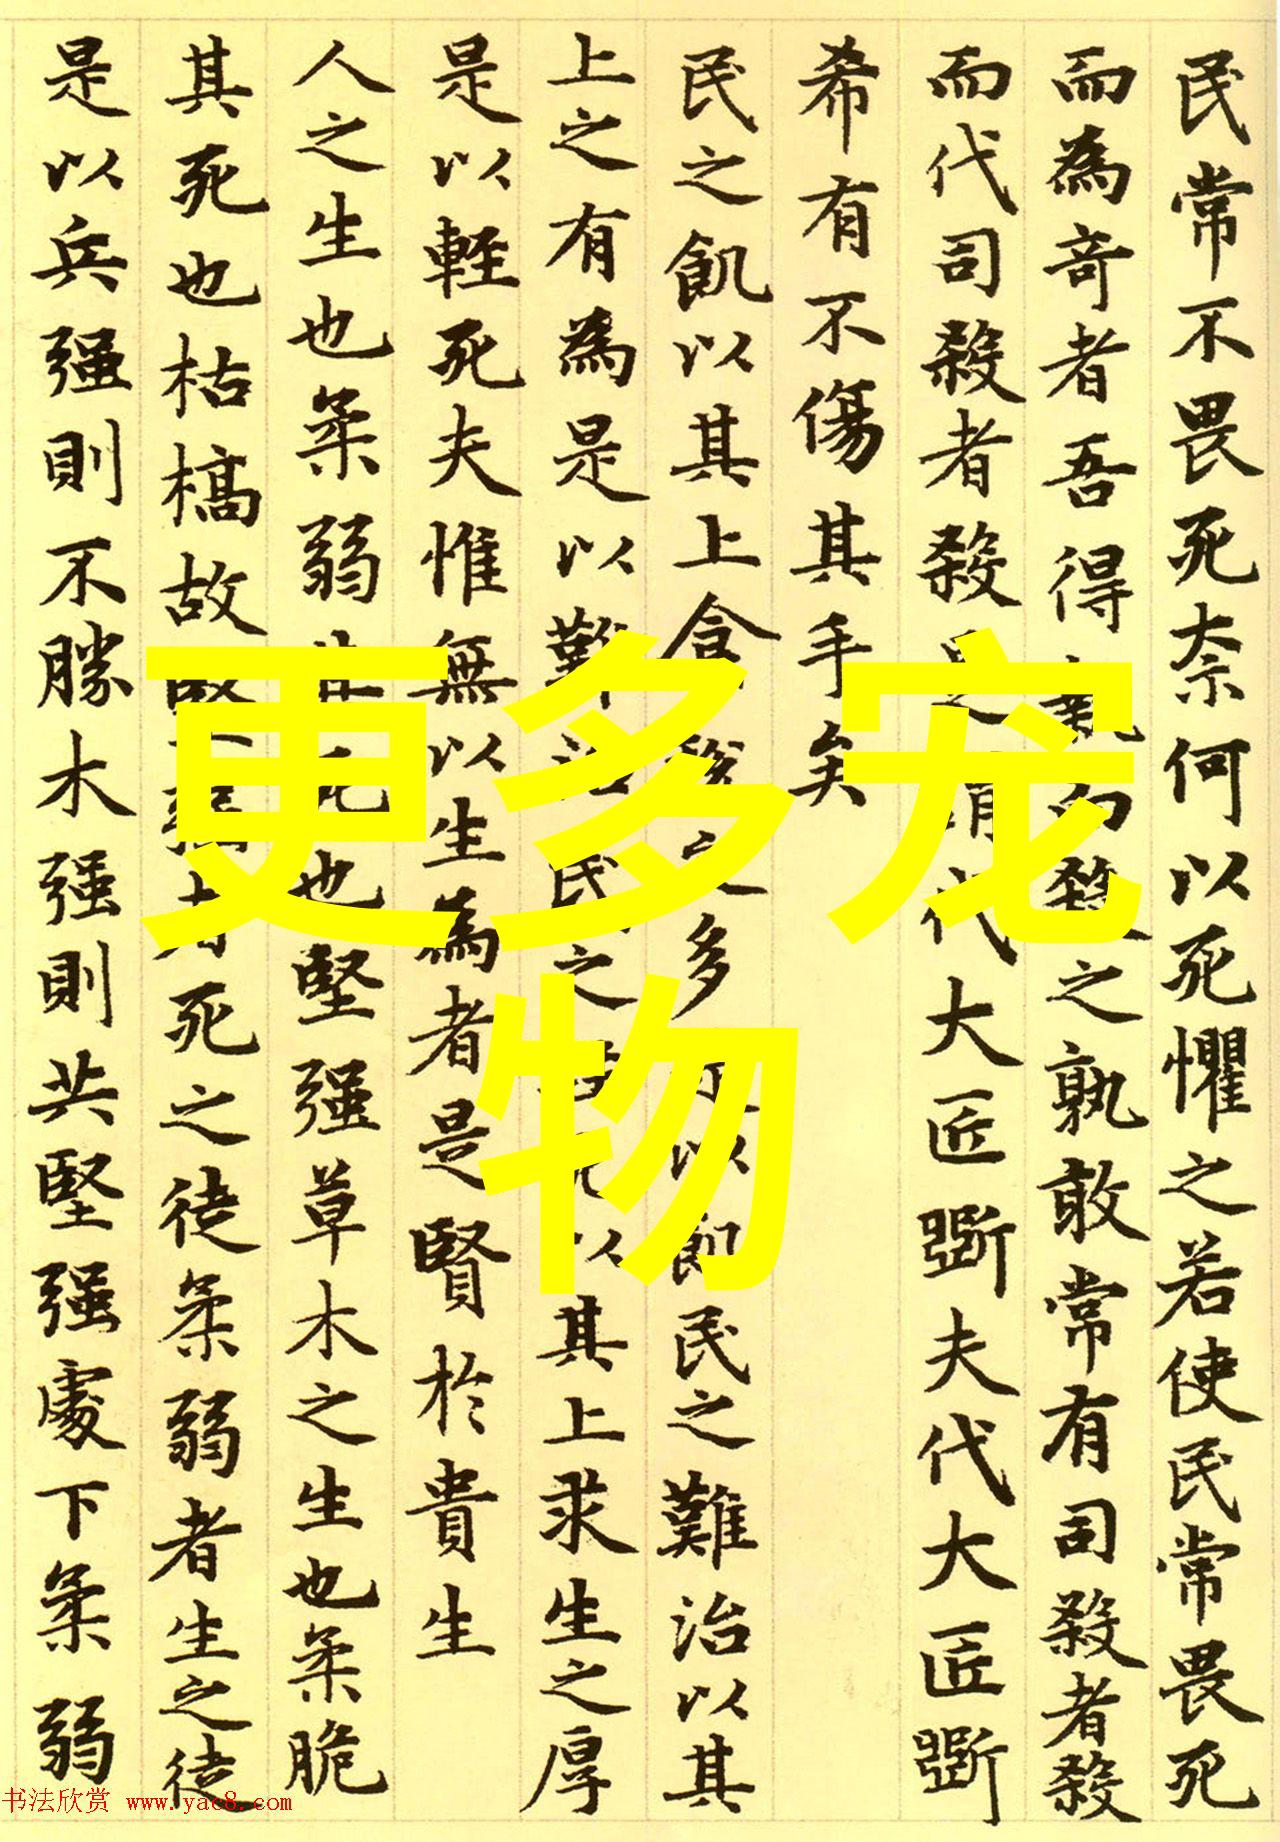 民常不畏死奈何以死懼之若使民常畏死
而為奇者吾得殺之孰敢常有司殺者殺
而代司殺者殺是謂代大匠斲夫代大匠斲
希有不傷其手矣
民之飢以其上食稅之多以飢民之難治以其
上之有為是以難治民之死以其上求生之厚
是以輕死夫惟無以生為者是賢於貴生
人之生也柔弱其死也堅强草木之生也柔脆
其死也枯槁故者死之徒柔弱者生之徒
是以兵强則不勝木强則共堅强處下柔弱
更多宠
物
书法欣赏 www.yac8.com